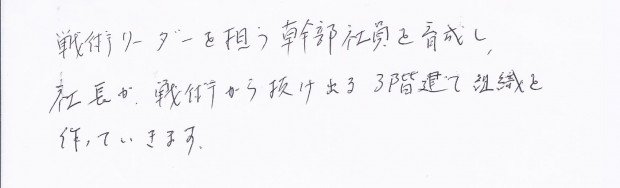 戦術リーダーを担う幹部社員を育成し、
社長が、戦術から抜け出る3階建て組織を
作っていきます。